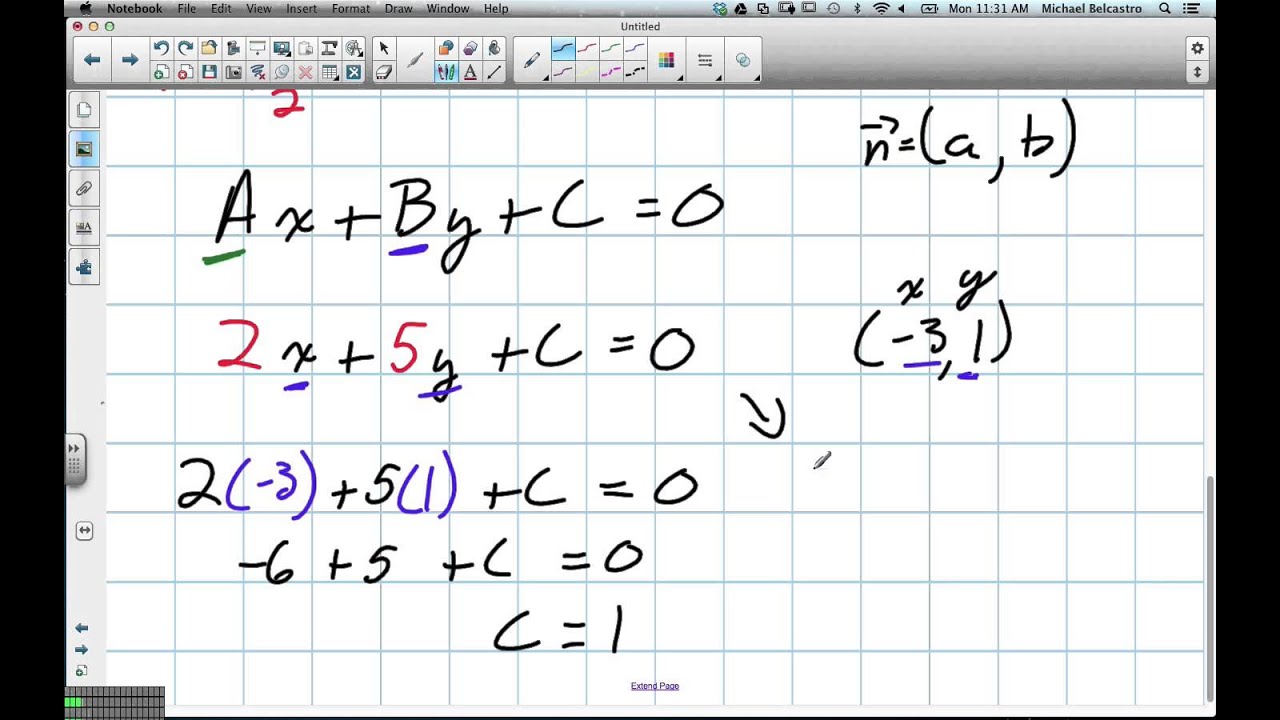 Notebook File Edit View Insert Format Draw Window Help Mon 11:31 AM Michael Belcastro
Untitled
2
n⃗=(a, b)
Ax+By+C=0
x y
(-3, 1)
2x+5y+C=0
2(-3)+5(1)+C=0
-6+5+C=0
C=1
Extend Page